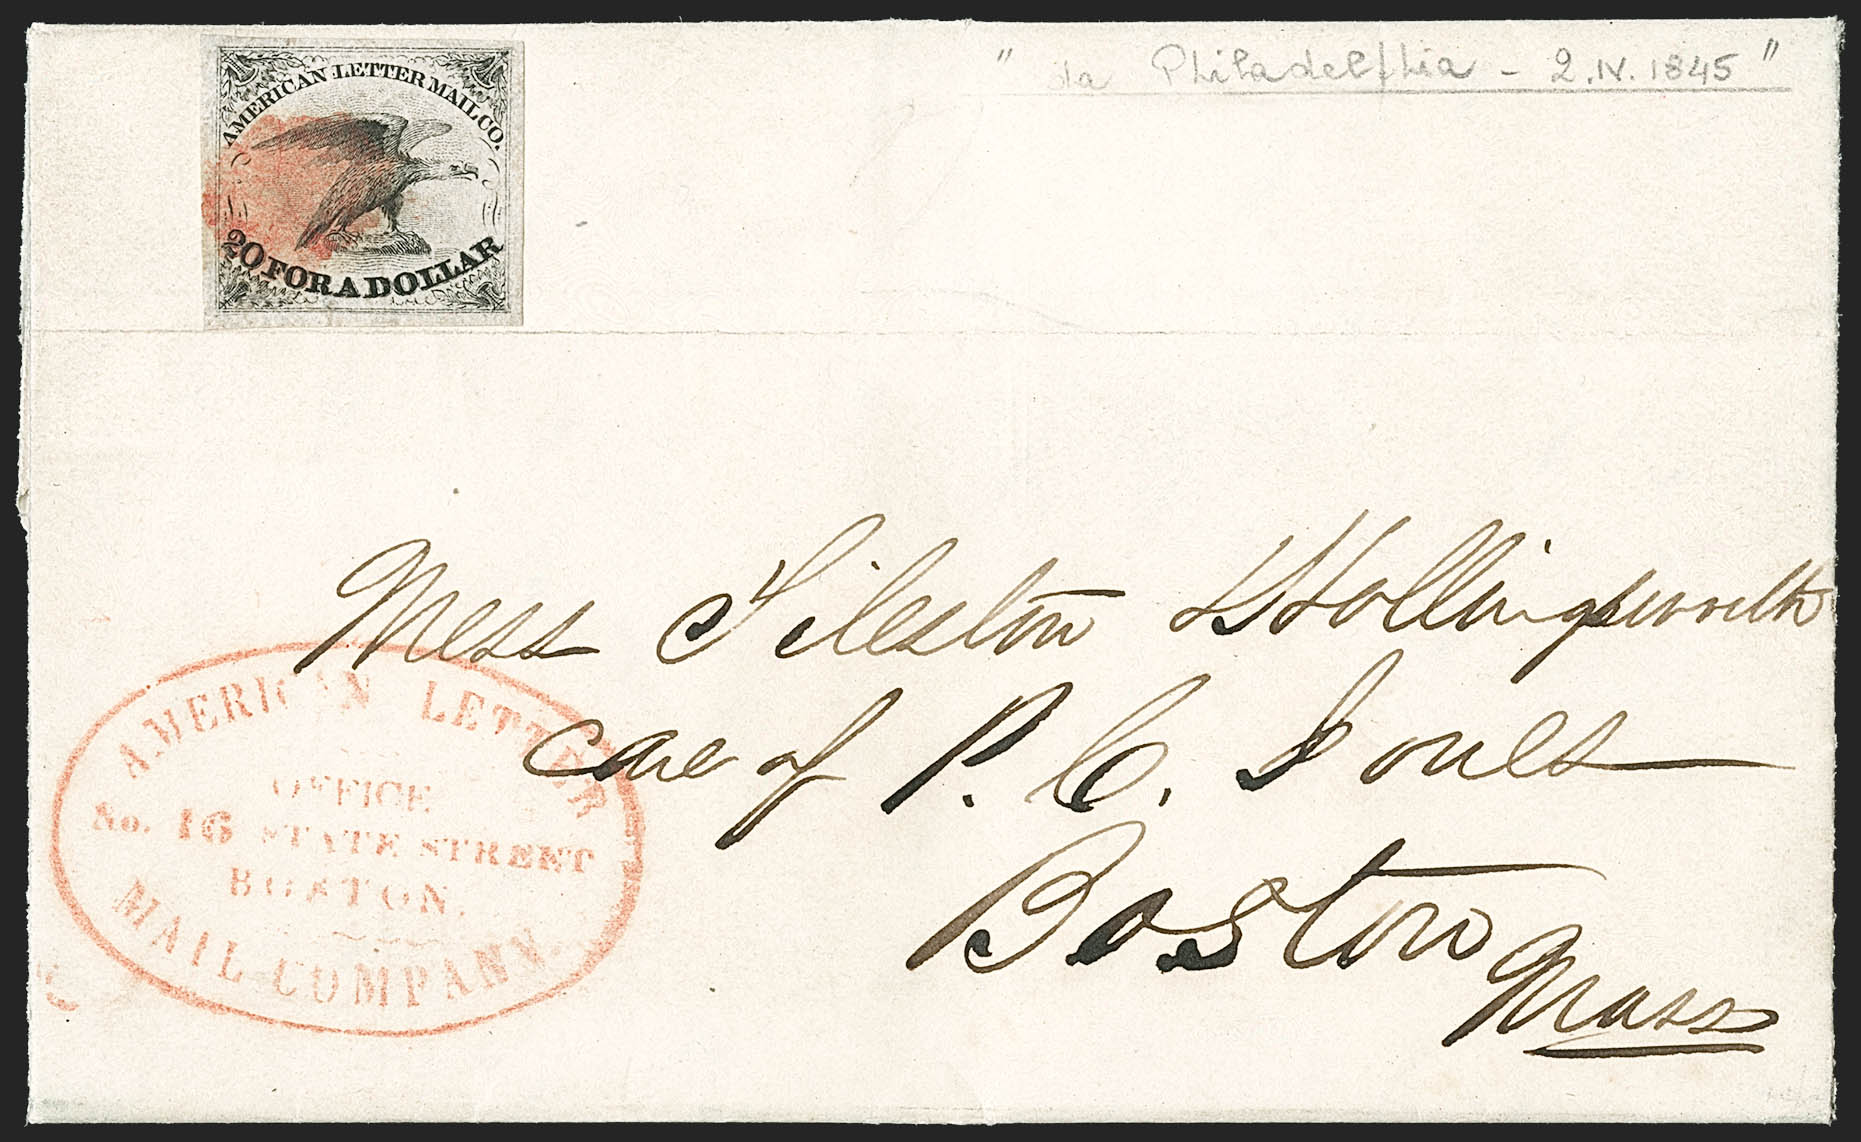 AMERICAN LETTER MAIL CO.
20 FOR A DOLLAR
" da Philadelphia - 2.IV.1845 "
Mess Tileston & Hollingsworth
care of P. C. Jones
Boston
Mass
AMERICAN LETTER
OFFICE
No. 16 STATE STREET
BOSTON.
MAIL COMPANY.